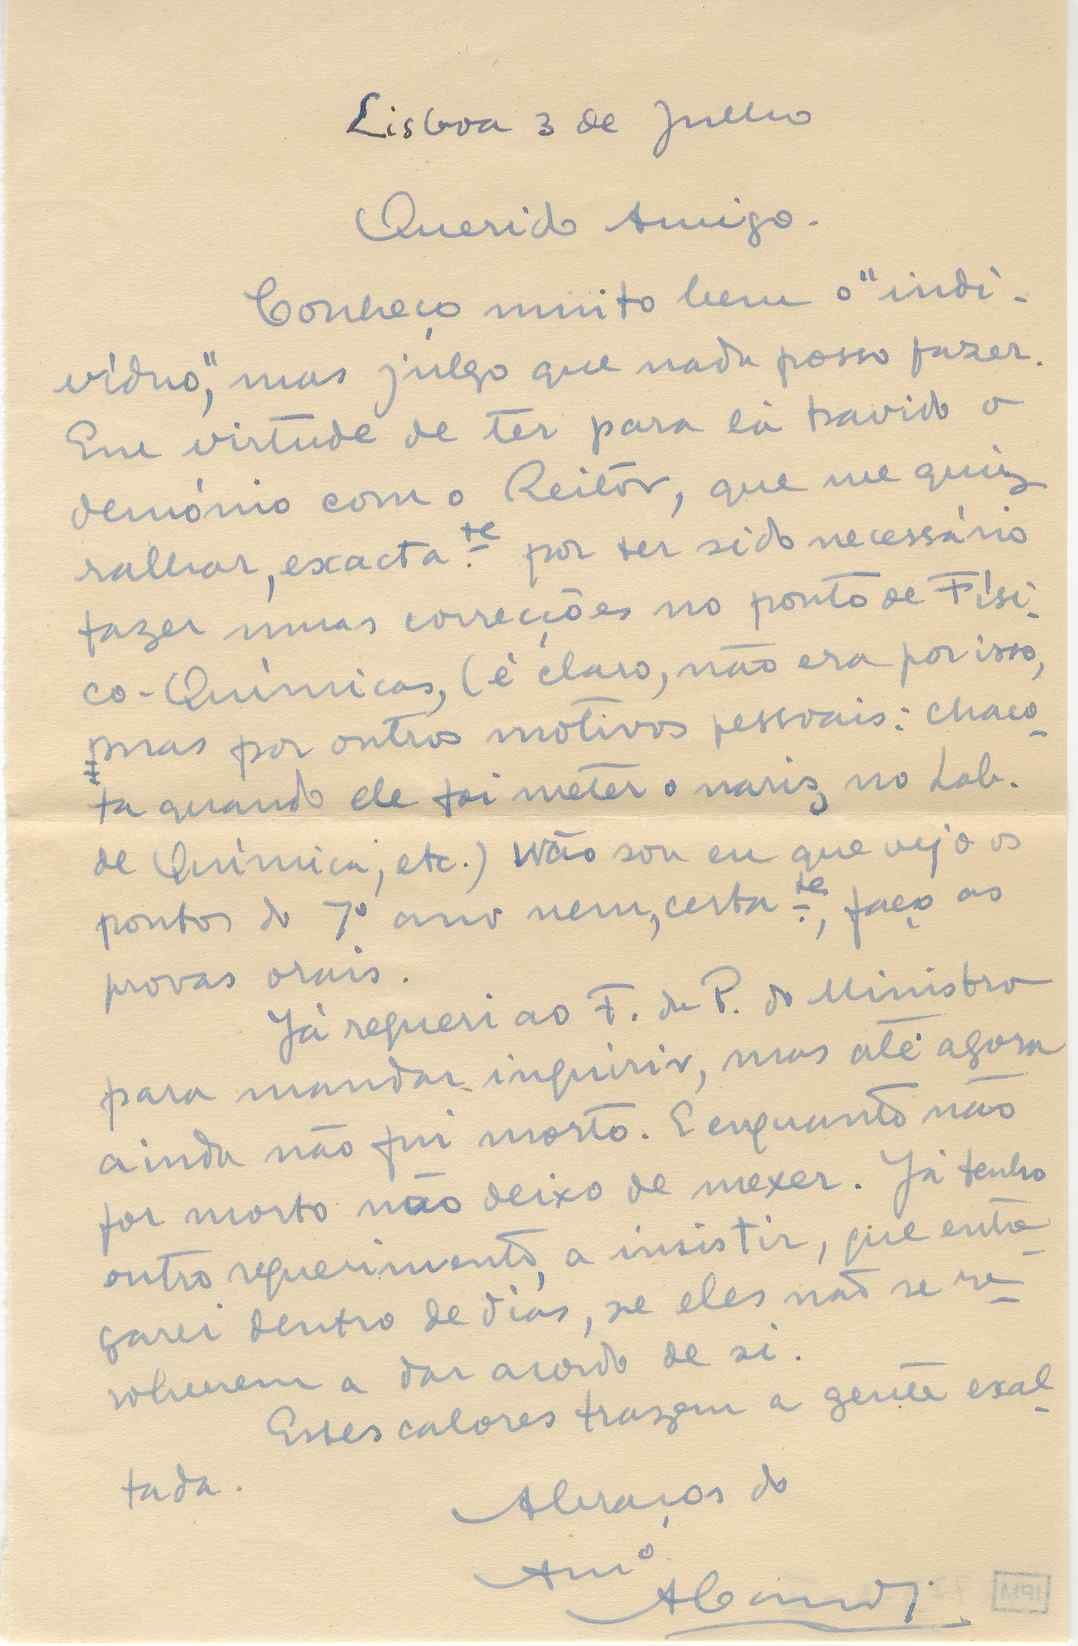 Lisboa 3 de Julho
Querido Amigo.
Conheço muito bem o "indi-
víduo", mas julgo que nada posso fazer.
Em virtude de ter para lá havido o
demónio com o Reitor, que me quiz
ralhar, exacta.te por ter sido necessário
fazer umas correcções no ponto de Físi-
co-Químicas, (é claro, não era por isso,
mas por outros motivos pessoais: chaco-
ta quando ele foi meter o nariz no Lab.
de Química, etc.) Não sou eu que vejo os
pontos do 7º ano nem, certa.te, faço as
provas orais.
Já requeri ao F. da P. do Ministro
para mandar inquirir, mas até agora
ainda não fui morto. E enquanto não
for morto não deixo de mexer. Já tenho
outro requerimento, a insistir, que entre-
garei dentro de dias, se eles não se re-
solverem a dar acordo de si.
Esses calores trazem a gente exal-
tada.
Abraços do
Amº